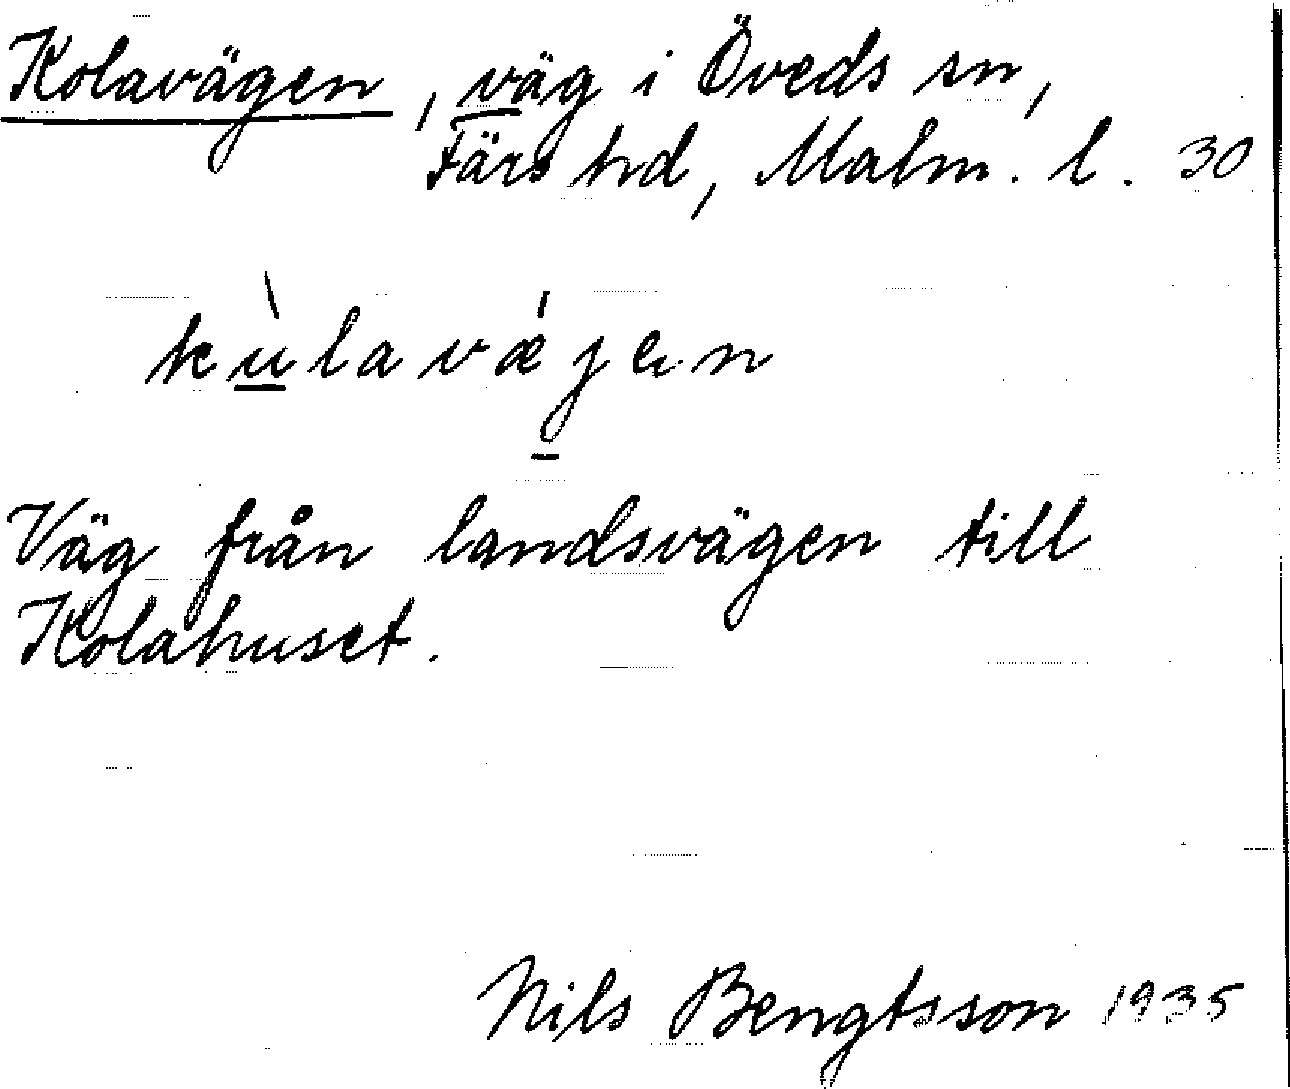 Kolavägen, väg i Öveds sn,
Färs hd, Malm. l. 30
kùlavǽjen
Väg från landsvägen till
Kolahuset.
Nils Bengtsson 1935